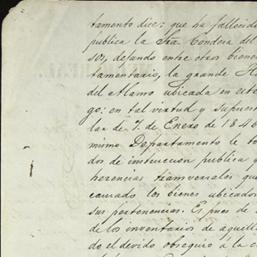 tamento dice: que ha fallecido
publica la Sra. Condesa del
sos, dejando entre otros bienes
tamentario, la grande
del Alamo ubicada en este
go: en tal virtud y
lar de 7. de Enero de 184
mismo Departamento le to
dos de instruccion publica y
herencias transversales que
causado los bienes ubicados
sus pertenencias. Es pues de
de los inventarios de aquell
do el devido obsequio a la c